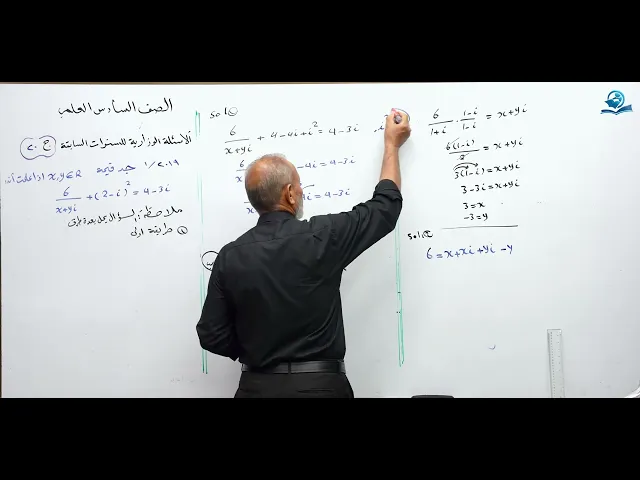 الصف السادس العلمي
الاسئلة الوزارية للسنوات السابقة
١/٢٠١٩ جد قيمة x,y∈R اذا علمت أن
6/(x+yi) + (2-i)² = 4-3i
طريقة اولى
sol
6/(x+yi) + 4-4i+i² = 4-3i
-4i = 4-3i
= 4-3i
6/(1+i) · (1-i)/(1-i) = x+yi
6(1-i)/2 = x+yi
3(1-i) = x+yi
3-3i = x+yi
3 = x
-3 = y
sol
6 = x+xi+yi-y